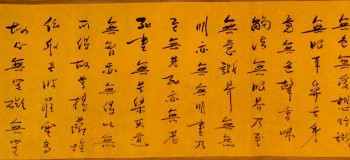 無受想行識
無眼耳鼻舌身
意無色聲香味
觸法無眼界乃至
無意識界無無
明亦無無明盡乃
至無老死亦無老
死盡無苦集滅道
無智亦無得以無
所得故菩提薩埵
依般若波羅蜜多
故心無罣礙無罣